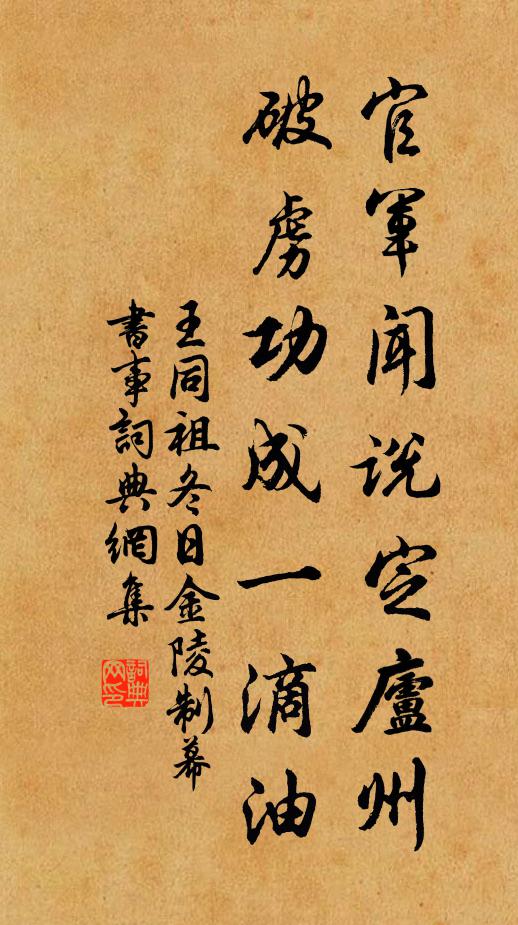 官軍聞説定廬州
破虜功成一滴油
王同祖冬日金陵制幕
書事詞典網集
詞典
网印